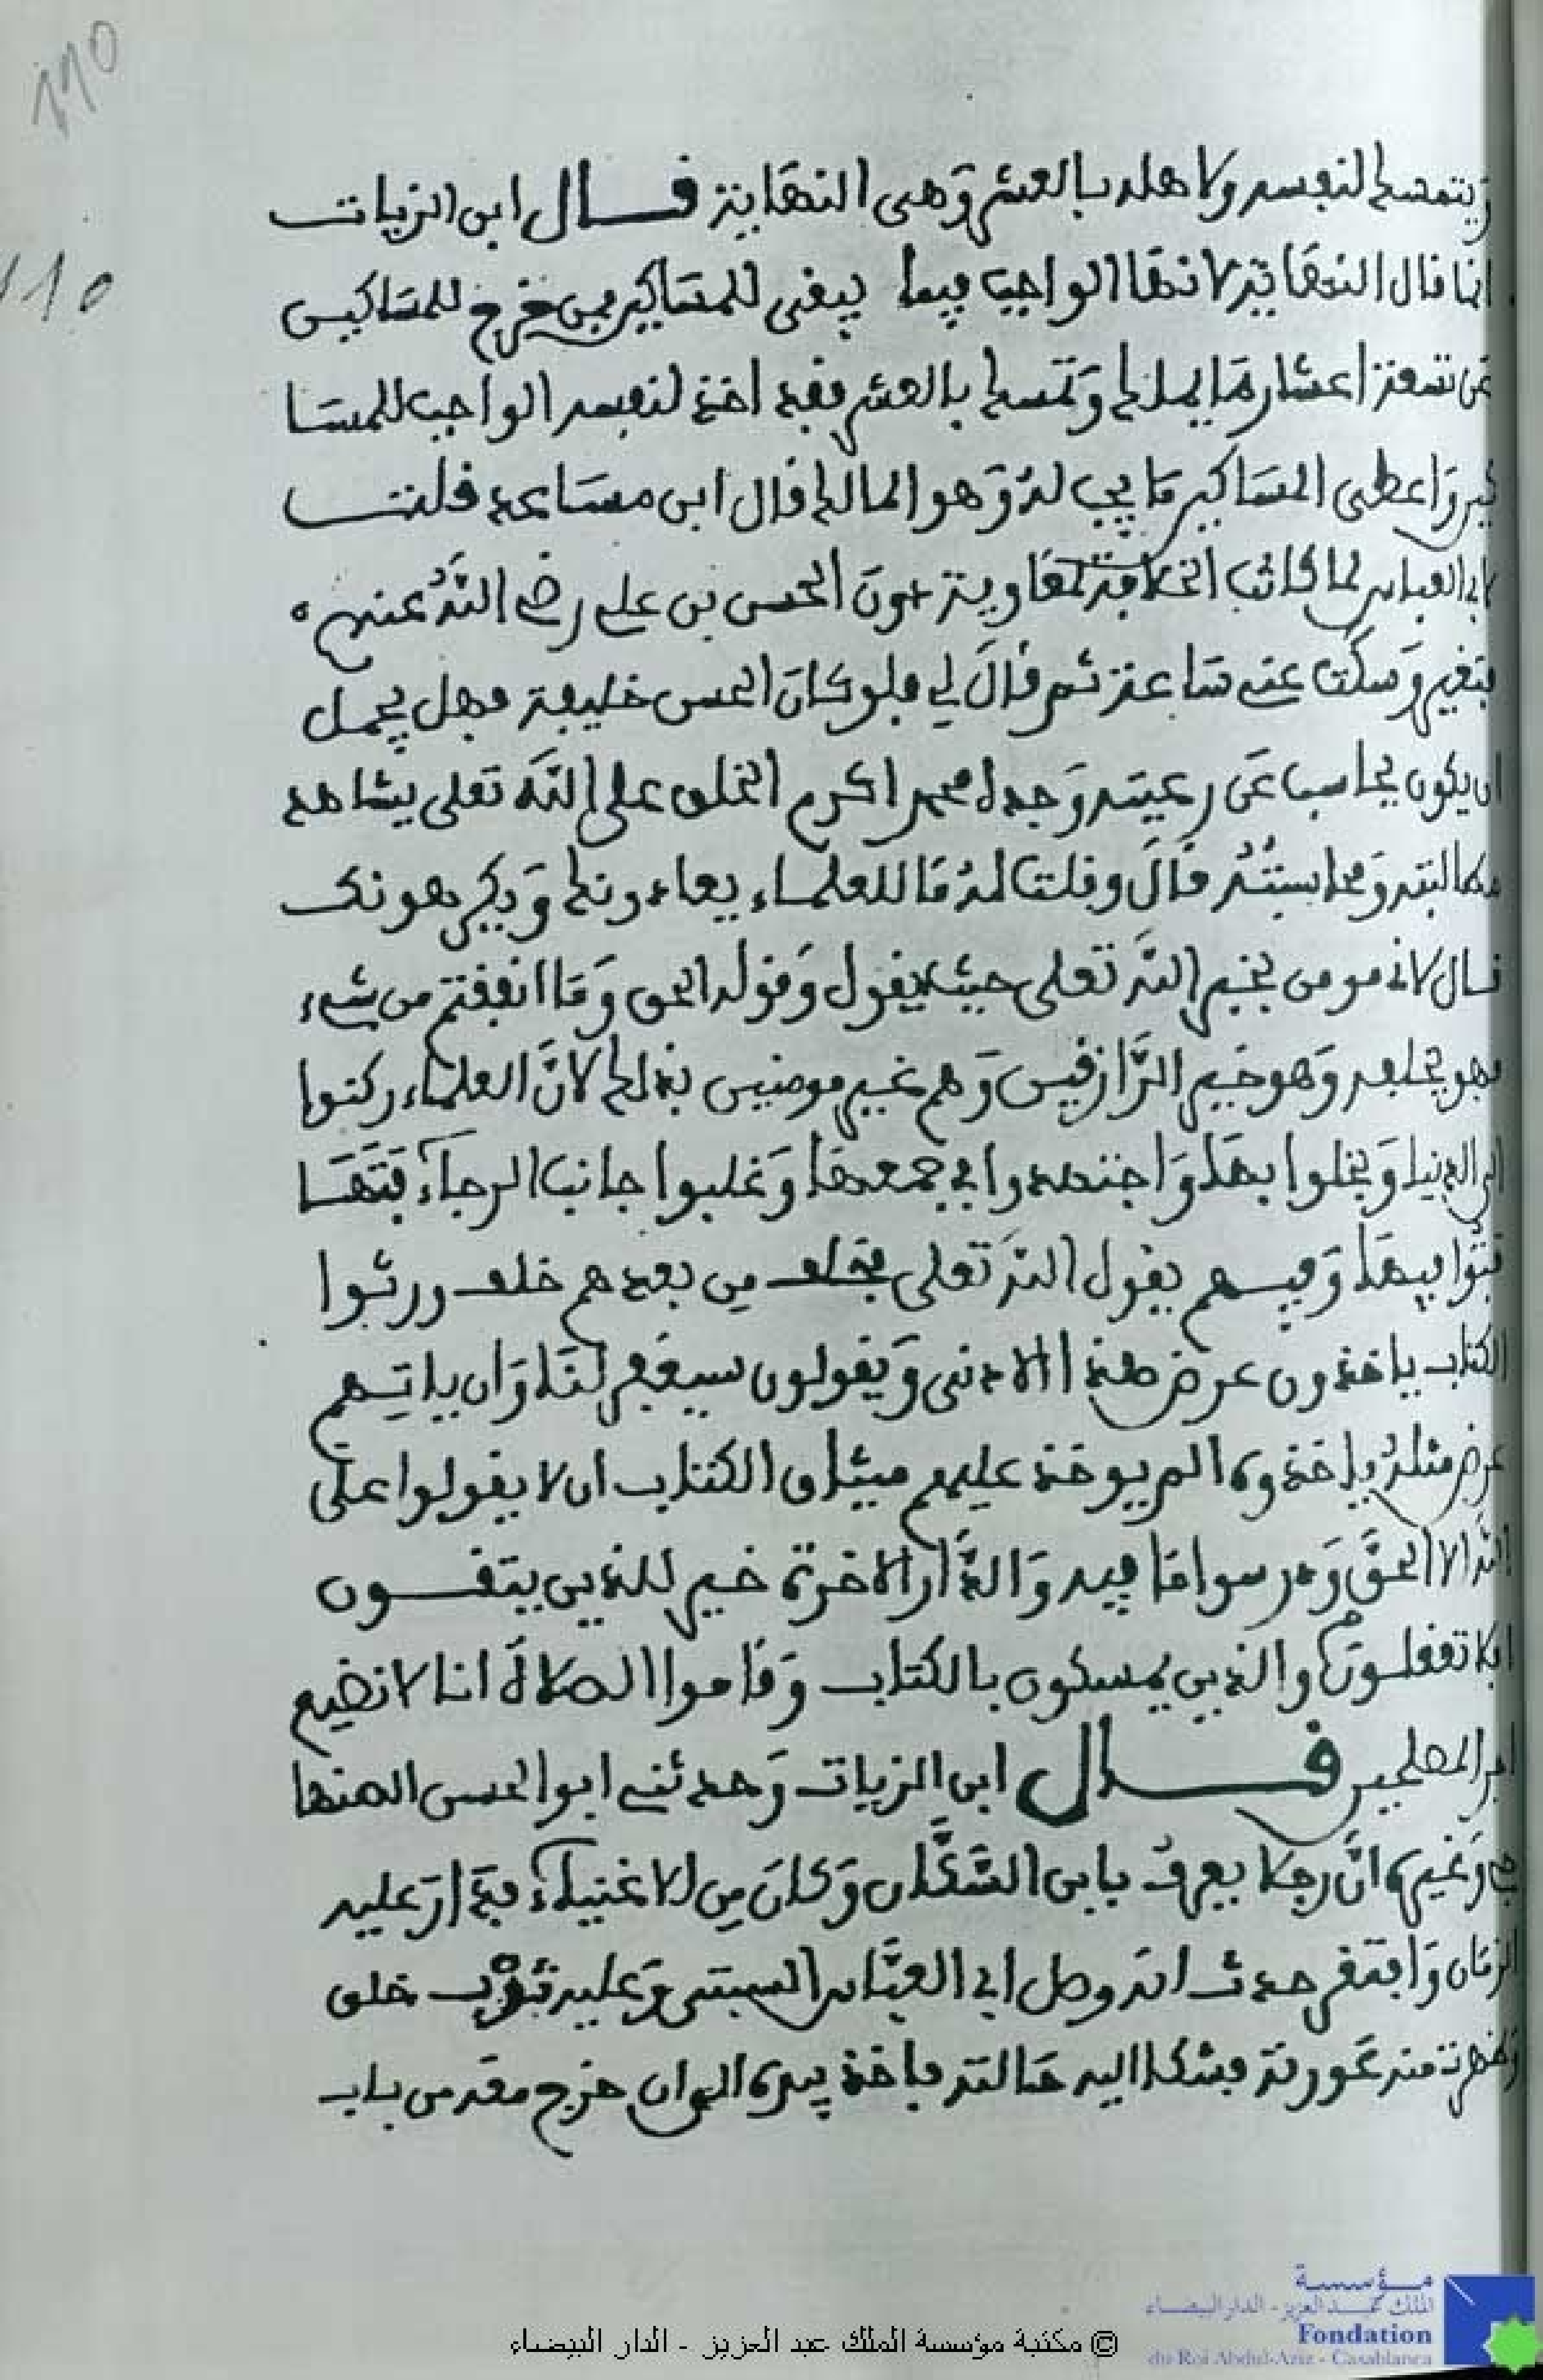 110
110
ويتمسك لنفسه ولاهله بالعشر وهي النهاية قال ابن الزيات
انما قال النهاية لانها الواجب فيما يبقى للمساكين فمن خرج للمساكين
عن تسعة اعشار ما يملك وتمسك بالعشر فقد اخذ لنفسه الواجب للمسا
كين واعطى المساكين ما يجب له وهو المالك قال ابن مساعد قلت
لابي العباس لما كانت الخلافة لمعاوية دون الحسن بن علي رضي الله عنهم
فتغير وسكت عني ساعة ثم قال لي فلو كان الحسن خليفة فهل يجمل
ان يكون يحاسب عن رعيته وجده محمد اكرم الخلق على الله تعلى يشاهد
مطالبته ومحاسبته قال وقلت له ما للعلماء يعادونك ويكرهونك
قال لاني مومن بخبر الله تعلى حيث يقول وقوله الحق وما انفقتم من شيء
فهو يخلفه وهو خير الرازقين وهم غير مومنين بذلك لان العلماء ركنوا
الى الدنيا وبخلوا بها واجتهدوا في جمعها وغلبوا جانب الرجاء فتها
فتوا فيها وفيهم يقول الله تعلى فخلف من بعدهم خلف ورثوا
الكتاب ياخذون عرض هذا الادنى ويقولون سيغفر لنا وان ياتهم
عرض مثله ياخذوه الم يوخذ عليهم ميثاق الكتاب ان لا يقولوا على
الله الا الحق ودرسوا ما فيه والدار الاخرة خير للذين يتقون
افلا تعقلون والذين يمسكون بالكتاب وقاموا الصلاة انا لا نضيع
اجر المصلحين قال ابن الزيات وحدثني ابو الحسن الصنها
جي وغيره ان رجلا يعرف بابن الشكان وكان من الاغنياء فدار عليه
الزمان وافتقر حدث انه وصل الى ابي العباس السبتي وعليه ثوب خلق
تظهر منه عورته فشكا اليه حالته فاخذ بيده الى ان خرج معه من باب
© مكتبة مؤسسة الملك عبد العزيز - الدار البيضاء
مؤسسة
الملك عبد العزيز - الدار البيضاء
Fondation
du Roi Abdul-Aziz - Casablanca